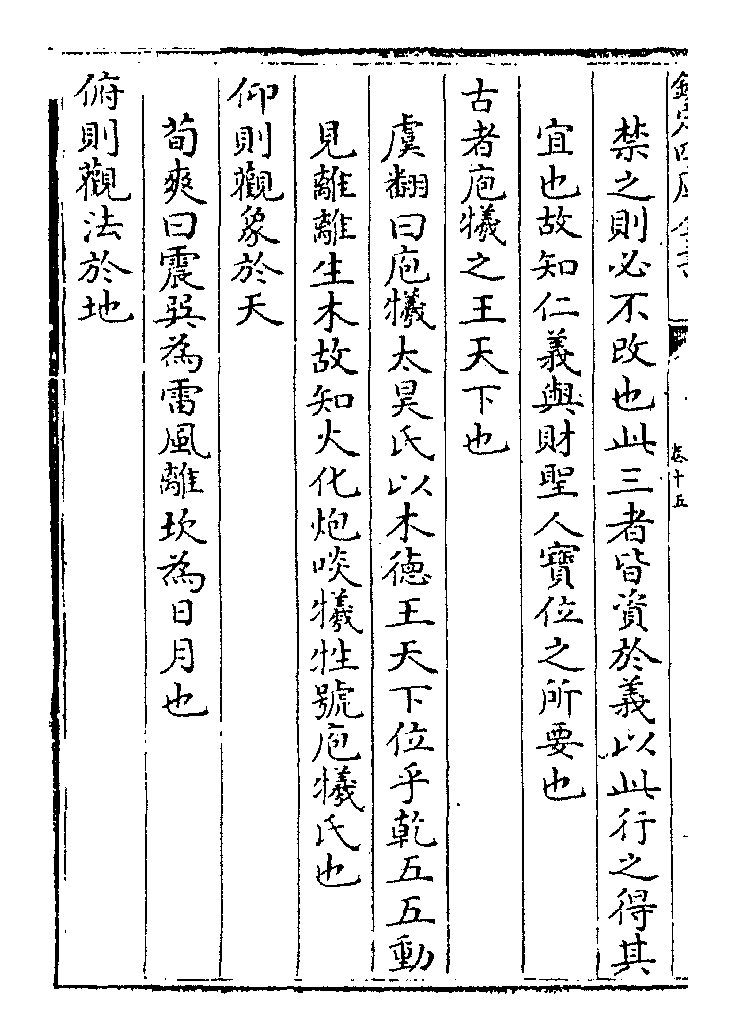 欽定四庫全書
卷十五
禁之則必不改也此三者皆資於義以此行之得其
宜也故知仁義與財聖人寶位之所要也
古者庖犧之王天下也
虞翻曰庖犧太昊氏以木德王天下位乎乾五五動
見離離生木故知火化炮啖犧牲號庖犧氏也
仰則觀象於天
荀爽曰震巽為雷風離坎為日月也
俯則觀法於地